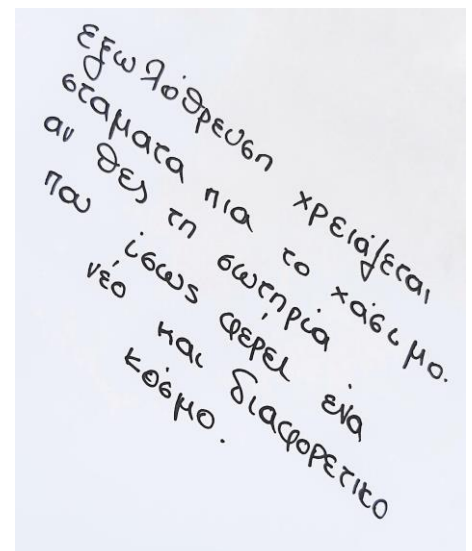 εξωλόθρευση χρειάζεται
σταματα πια το χάσιμο.
αν θες τη σωτηρία
που ίσως φέρει ένα
νέο και διαφορετικο
κόσμο.